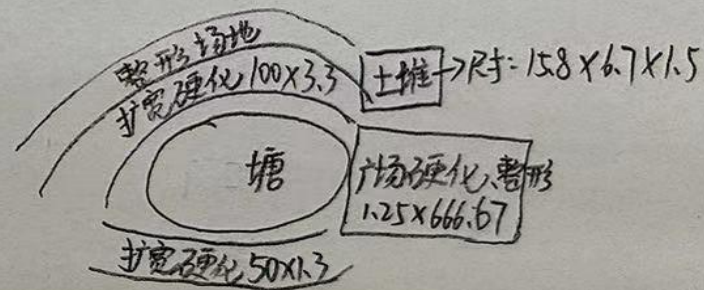 整形场地
扩宽硬化100×3.3
土堆→尺寸:15.8×6.7×1.5
塘
广场硬化、整形
1.25×666.67
扩宽硬化50×1.3